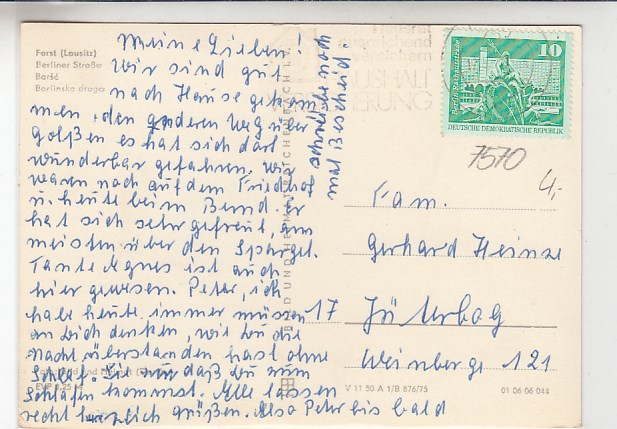 Forst (Lausitz)
Berliner Straße
Baršć
Barlinska droga
Meine Lieben!
Wir sind gut
nach Hause gekom
men, den anderen Weg über
Golßen es hat sich dort
wunderbar gefahren. Wir
waren noch auf dem Friedhof
u. heute beim Bernd. Er
hat sich sehr gefreut, am
meisten über den Spargel.
Tante Agnes ist auch
hier gewesen. Peter, ich
habe heute immer müssen
an Dich denken, wie Du die
Nacht überstanden hast ohne
Schlaf. Sieh nur daß Du zum
Schlafen kommst. Alle lassen
recht herzlich grüßen. Also Peter bis bald
schreibe noch
mal Bescheid.
BILD UND HEIMAT REICHENBACH I. V.
EVP 0,25 M
ausreichend
HAUSHALT
10
Berlin, Rathausstraße
DEUTSCHE DEMOKRATISCHE REPUBLIK
7570
4,-
Fam.
Gerhard Heinze
17 Jüterbog
Weinberge 121
V 11 50 A 1/B 876/75
01 06 06 044